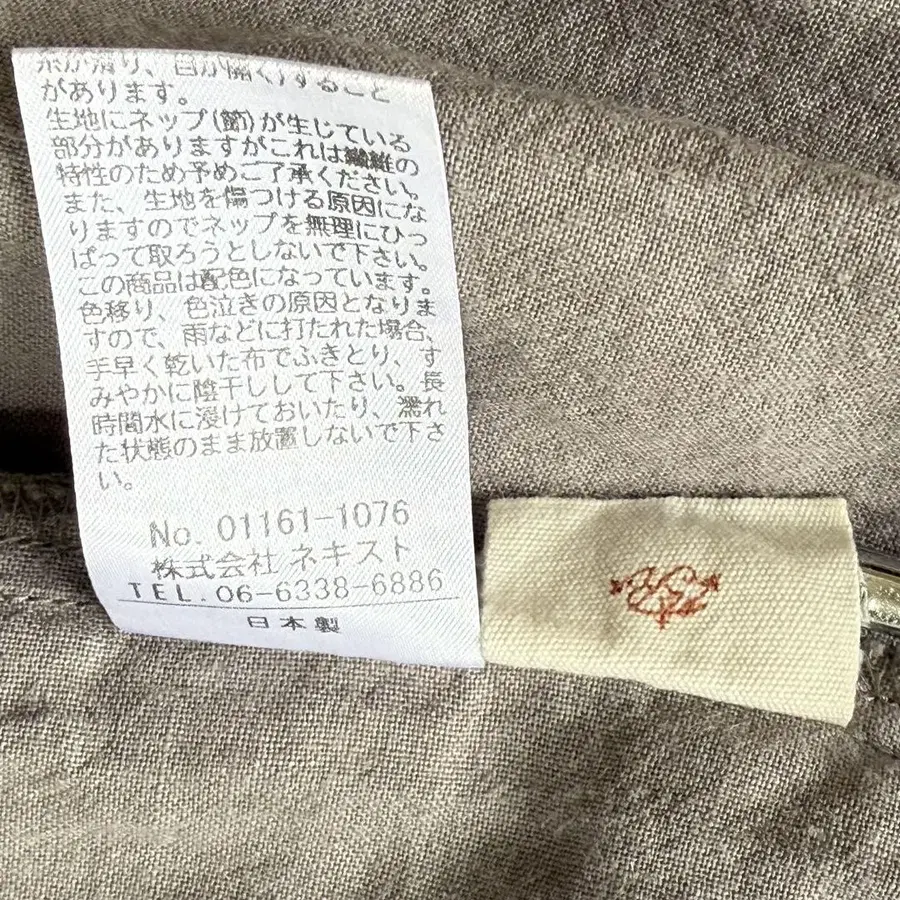 糸が滑り、目が開く)すること
があります。
生地にネップ(節)が生じている
部分がありますがこれは繊維の
特性のため予めご了承ください。
また、生地を傷つける原因にな
りますのでネップを無理にひっ
ぱって取ろうとしないで下さい。
この商品は配色になっています。
色移り、色泣きの原因となりま
すので、雨などに打たれた場合、
手早く乾いた布でふきとり、す
みやかに陰干しして下さい。長
時間水に浸けておいたり、濡れ
た状態のまま放置しないで下さ
い。
No. 01161-1076
株式会社 ネキスト
TEL. 06-6338-6886
日本製